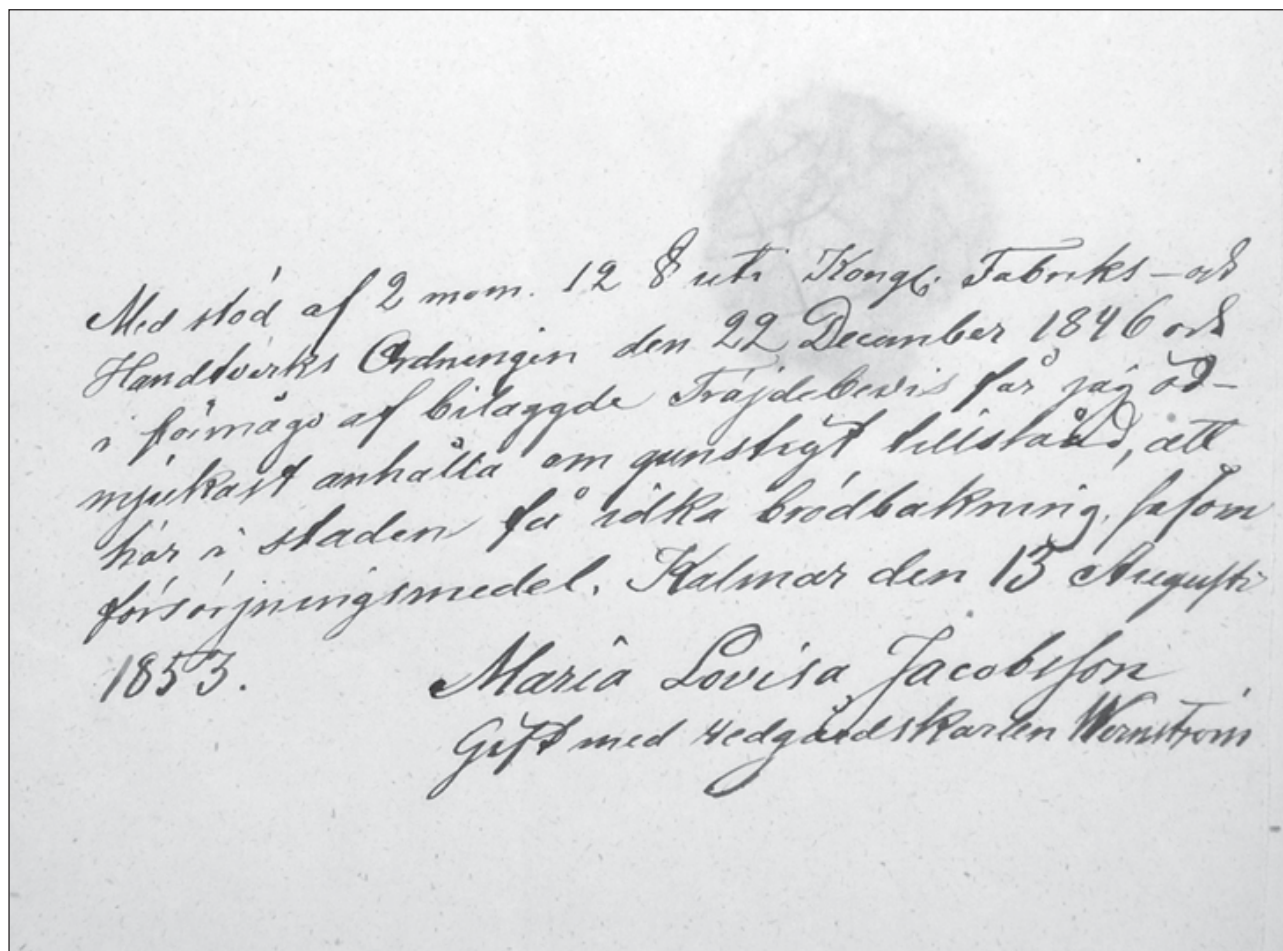 Med stöd af 2 mom. 12 § uti Kongl. Fabriks- och
Handtverks Ordningen den 22 December 1846 och
i förmågo af bilaggde Fräjdebevis får jag öd-
mjukast anhålla om gunstigt tillstånd, att
här i staden få idka brödbakning, såsom
försörjningsmedel. Kalmar den 13 Augusti
1853. Maria Lovisa Jacobsson
Gift med Wedgårdskarlen Wernström